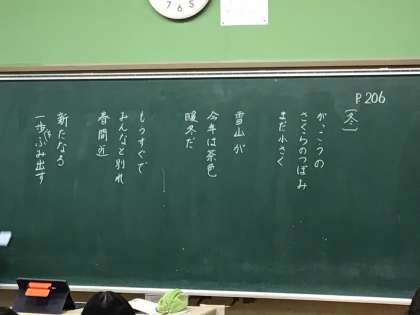 P.206
(冬)
がっこうの
さくらのつぼみ
まだ小さく
雪山が
今年は茶色
暖冬だ
もうすぐで
みんなと別れ
春間近
新たなる
一歩ふみ出す
7 6 5